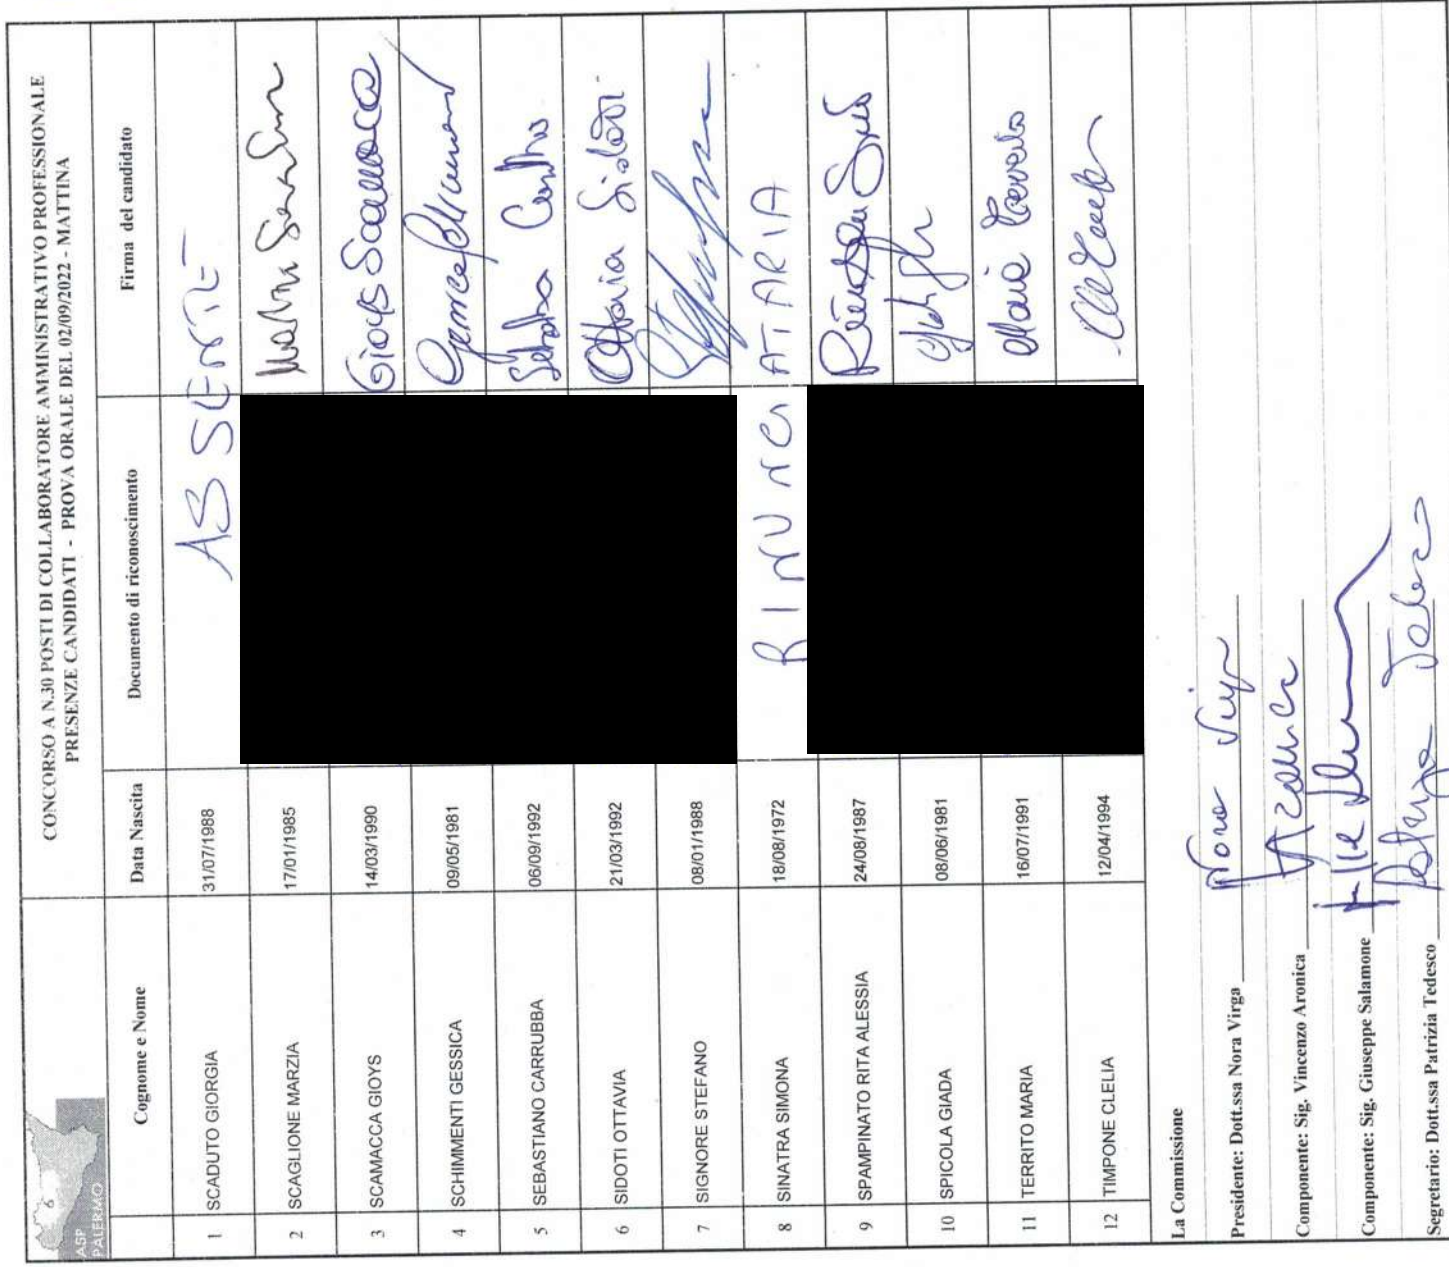 ASP
PALERMO
6
CONCORSO A N.30 POSTI DI COLLABORATORE AMMINISTRATIVO PROFESSIONALE
PRESENZE CANDIDATI - PROVA ORALE DEL 02/09/2022 - MATTINA
Cognome e Nome Data Nascita Documento di riconoscimento Firma del candidato
1 SCADUTO GIORGIA 31/07/1988 ASSENTE
2 SCAGLIONE MARZIA 17/01/1985
3 SCAMACCA GIOYS 14/03/1990 Gioys Scamacca
4 SCHIMMENTI GESSICA 09/05/1981
5 SEBASTIANO CARRUBBA 06/09/1992
6 SIDOTI OTTAVIA 21/03/1992 Ottavia Sidoti
7 SIGNORE STEFANO 08/01/1988
8 SINATRA SIMONA 18/08/1972 RINUNCIATARIA
9 SPAMPINATO RITA ALESSIA 24/08/1987
10 SPICOLA GIADA 08/06/1981
11 TERRITO MARIA 16/07/1991 Maria Territo
12 TIMPONE CLELIA 12/04/1994
La Commissione
Presidente: Dott.ssa Nora Virga Nora Virga
Componente: Sig. Vincenzo Aronica
Componente: Sig. Giuseppe Salamone
Segretario: Dott.ssa Patrizia Tedesco Patrizia Tedesco